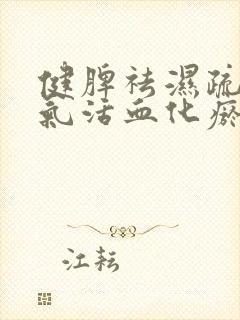 健脾祛濕疏
氣活血化瘀
江耘